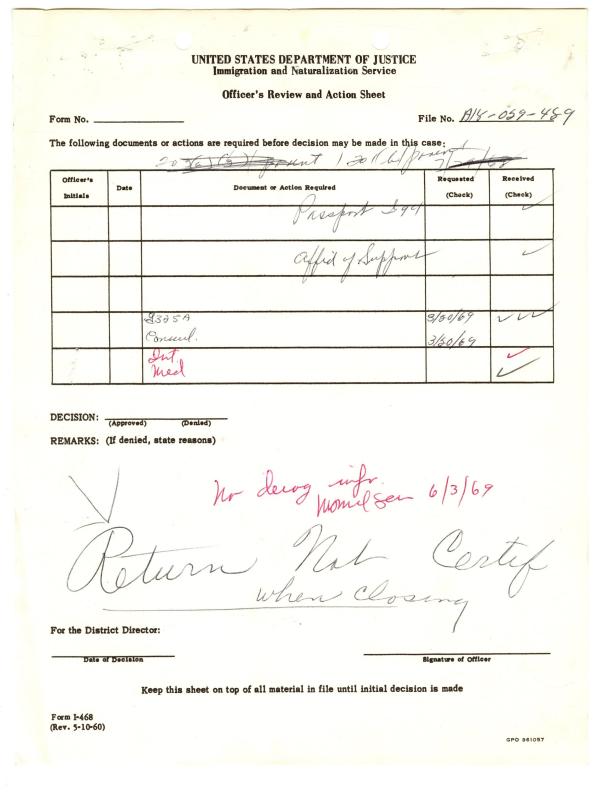 UNITED STATES DEPARTMENT OF JUSTICE
Immigration and Naturalization Service
Officer's Review and Action Sheet
Form No.
File No. A18-059-489
The following documents or actions are required before decision may be made in this case:
Officer's Initials
Date
Document or Action Required
Requested (Check)
Received (Check)
Passport I94 ✓
Affid of Support ✓
G325A 3/30/69 ✓ ✓ ✓
Consul. 3/30/69
Int. ✓
Med ✓
DECISION:
(Approved) (Denied)
REMARKS: (If denied, state reasons)
No derog info.
6/3/69
Return Nat Certif
when closing
For the District Director:
Date of Decision
Signature of Officer
Keep this sheet on top of all material in file until initial decision is made
Form I-468
(Rev. 5-10-60)
GPO 961057